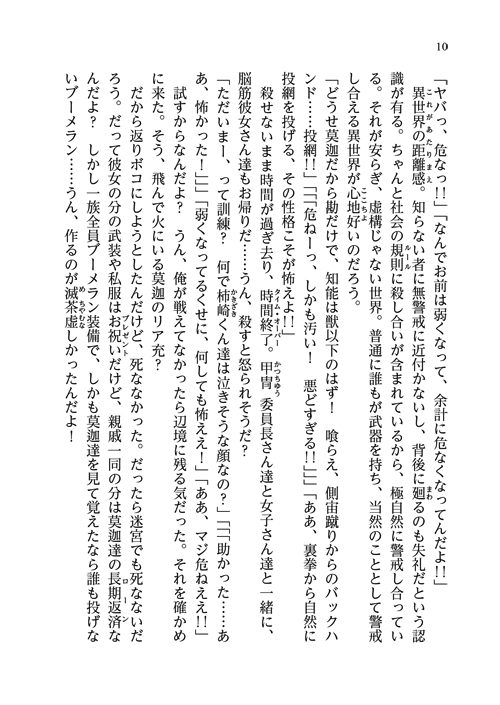 10
「ヤバっ、危なっ!!」「なんでお前は弱くなって、余計に危なくなってんだよ!!」
異世界の距離感。知らない者に無警戒に近付かないし、背後に廻るのも失礼だという認
識が有る。ちゃんと社会の規則に殺し合いが含まれているから、極自然に警戒し合ってい
る。それが安らぎ、虚構じゃない世界。普通に誰もが武器を持ち、当然のこととして警戒
し合える異世界が心地好いのだろう。
「どうせ莫迦だから勘だけで、知能は獣以下のはず! 喰らえ、側宙蹴りからのバックハ
ンド……投網!!」「「危ねーっ、しかも汚い! 悪どすぎる!!」」「ああ、裏拳から自然に
投網を投げる、その性格こそが怖えよ!!」
殺せないまま時間が過ぎ去り、時間終了。甲冑委員長さん達と女子さん達と一緒に、
脳筋彼女さん達もお帰りだ……うん、殺すと怒られそうだ?
「ただいまー、って訓練? 何で柿崎くん達は泣きそうな顔なの?」「「助かった……あ
あ、怖かった!」」「弱くなってるくせに、何しても怖ええ!」「ああ、マジ危ねええ!!」
試すからなんだよ? うん、俺が戦えてなかったら辺境に残る気だった。それを確かめ
に来た。そう、飛んで火にいる莫迦のリア充?
だから返りボコにしようとしたんだけど、死ななかった。だったら迷宮でも死なないだ
ろう。だって彼女の分の武装や私服はお祝いだけど、親戚一同の分は莫迦達の長期返済な
んだよ? しかし一族全員ブーメラン装備で、しかも莫迦達を見て覚えたなら誰も投げな
いブーメラン……うん、作るのが滅茶虚しかったんだよ!